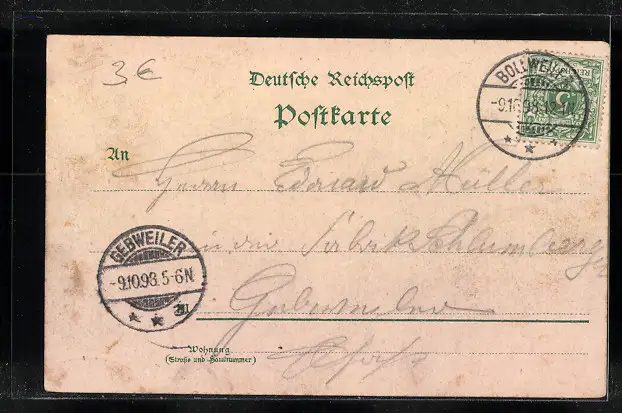 3 €
Deutsche Reichspost
Postkarte
BOLLWEILER
-9.10.98.
REICHSPOST
5
An
Herrn Edouard Müller
in der Fabrik Schlumberger
GEBWEILER
-9.10.98. 5-6N.
in
Gebweiler
Wohnung
(Straße und Hausnummer)
Elsaß